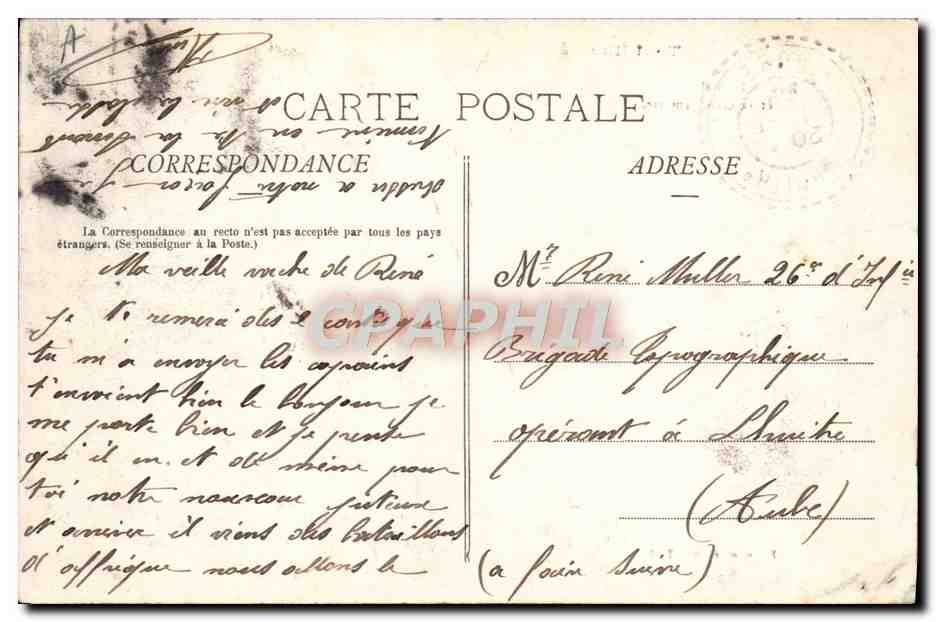 CARTE POSTALE
CORRESPONDANCE
La Correspondance au recto n'est pas acceptée par tous les pays
étrangers. (Se renseigner à la Poste.)
Ma veille vache de René
je te remerci des 2 carte que
tu m'a envoyer les copains
t'envoient bien le bonjour je
me porte bien et je pense
qu'il en et de même pour
toi notre nouveau juteux
et arriver il viens des bataillons
d'affrique nous allons le
ADRESSE
Mr René Muller 26e d'Infie
Brigade Topographique
opérant à Lhuitre
(Aube)
(a faire suivre)
CPAPHIL